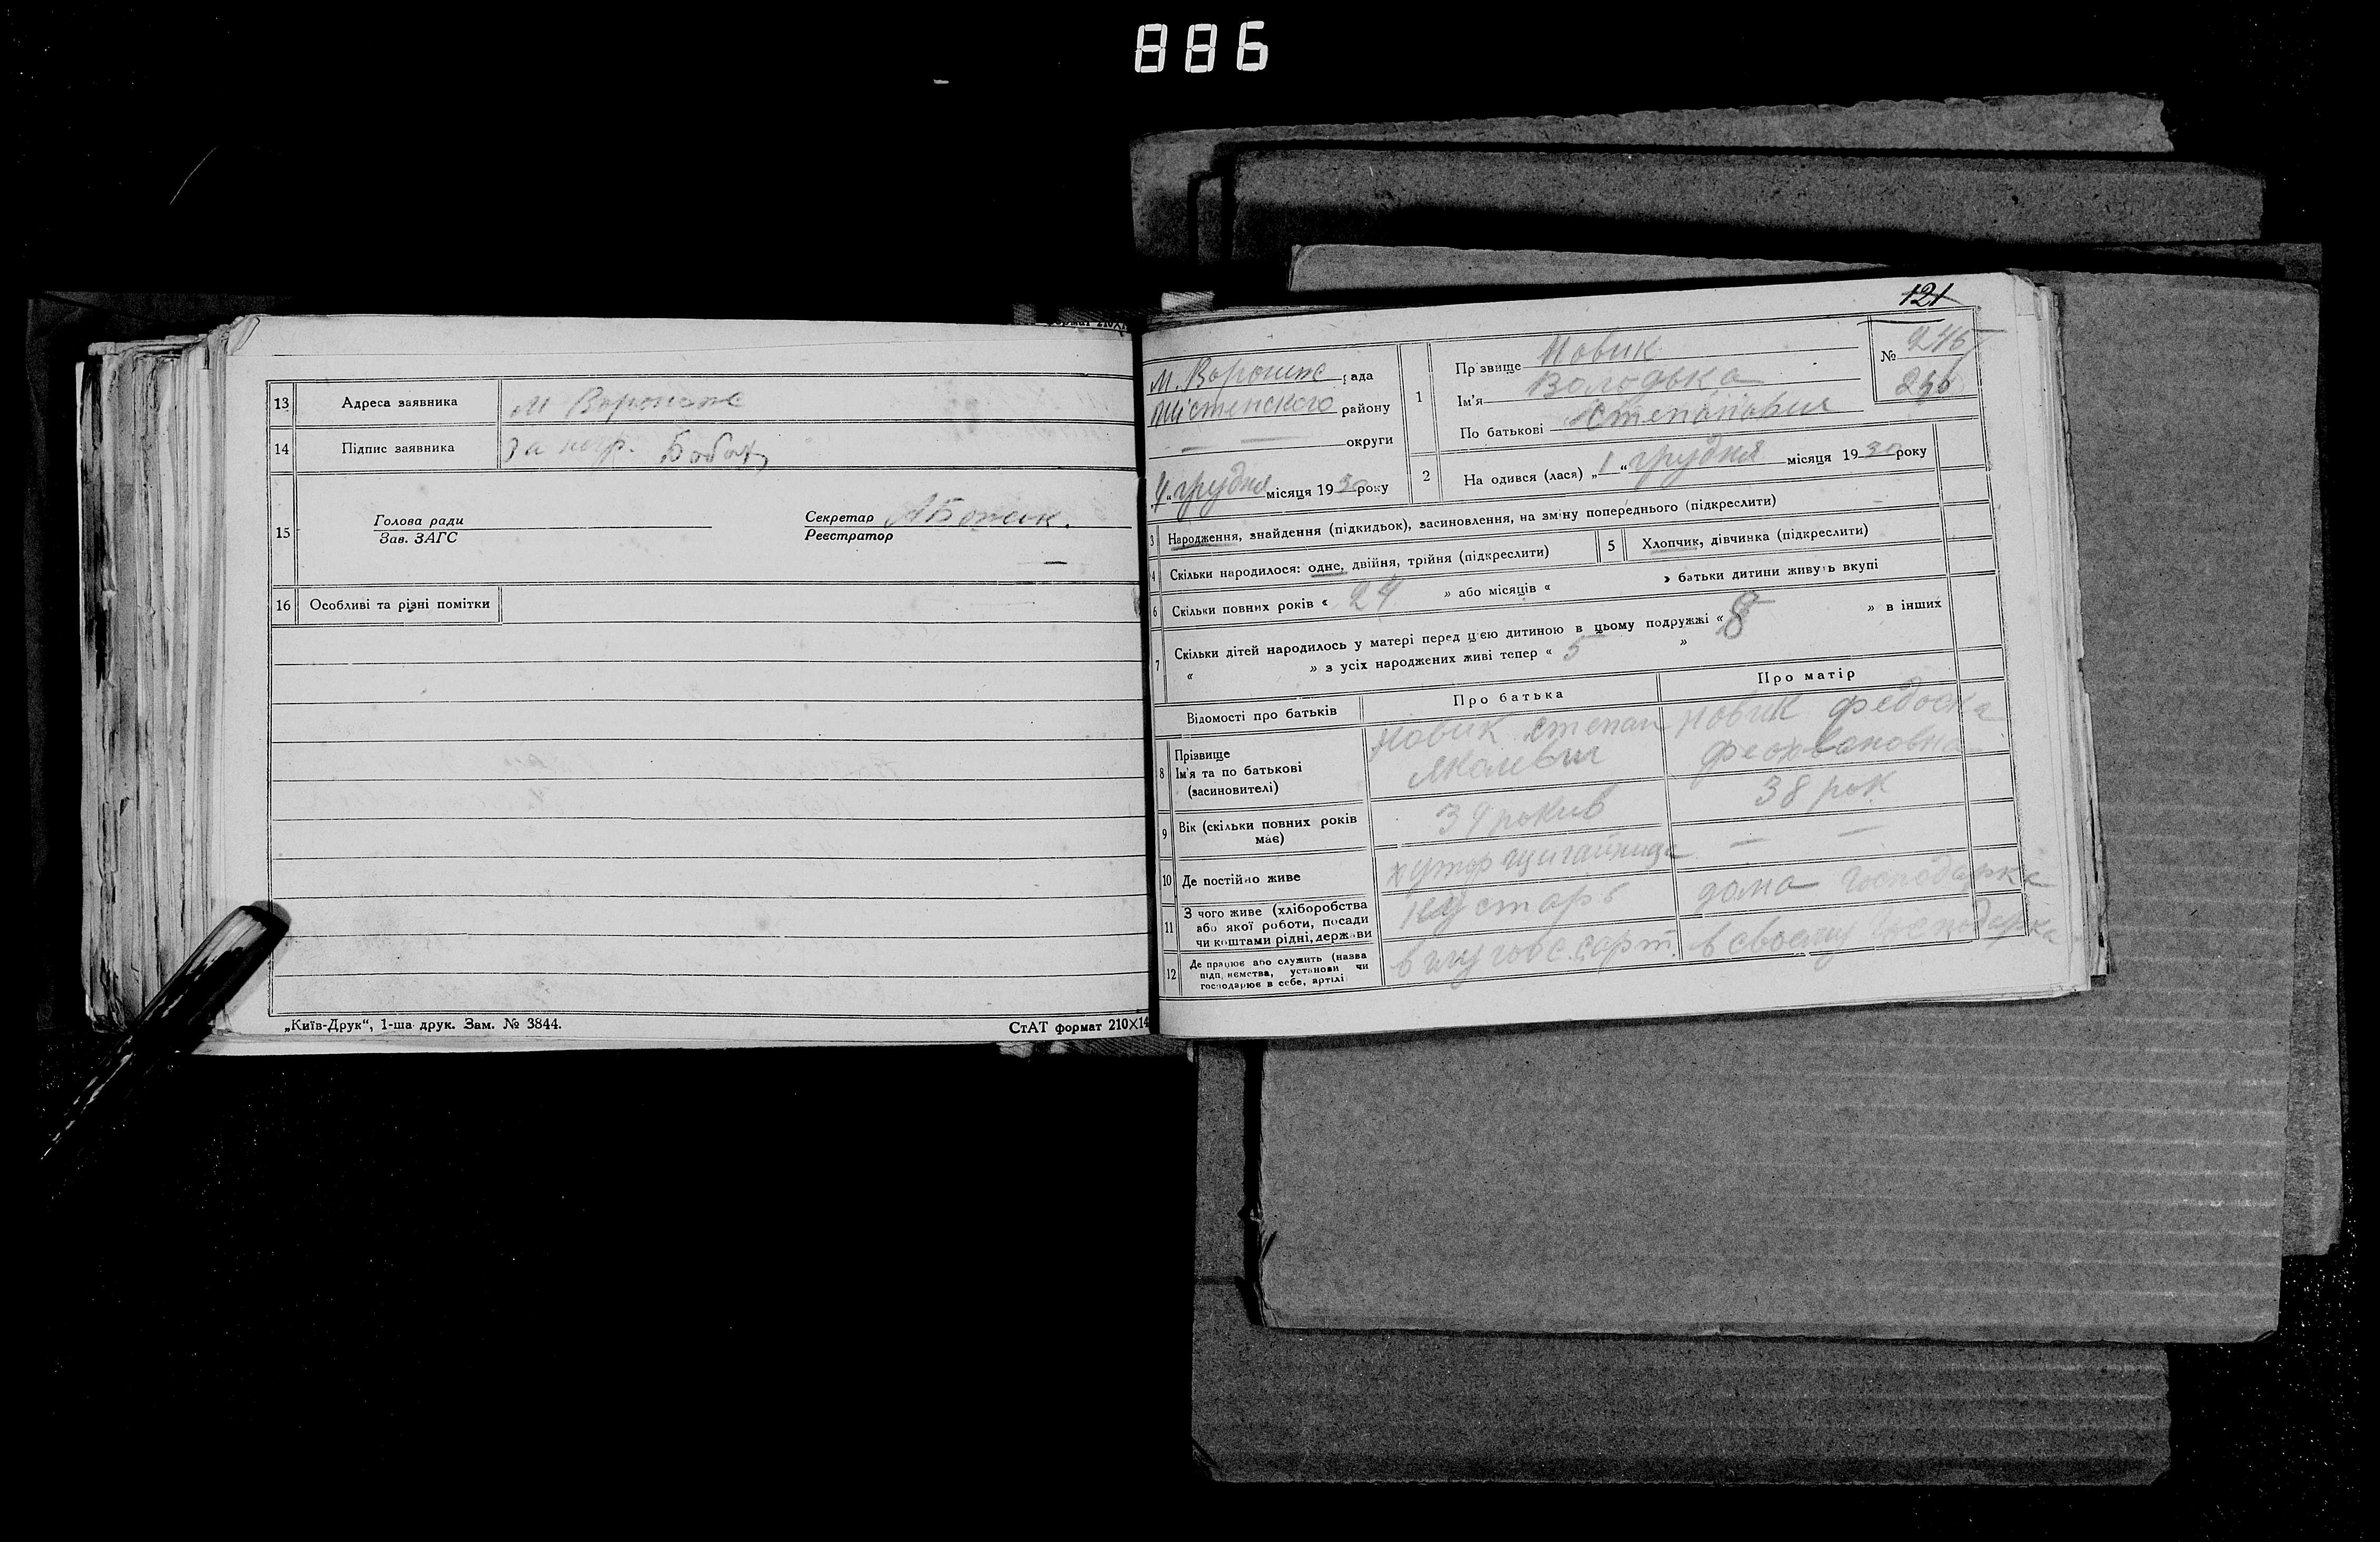 886
формат 210X1
13 Адреса заявника м Вороніж
14 Підпис заявника За негр.
15 Голова ради
Зав. ЗАГС
Секретар
Реєстратор
16 Особливі та різні помітки
„Київ-Друк“, 1-ша друк. Зам. № 3844.
СтАТ формат 210X14
121
м. Вороніж рада
району
округи
грудня місяця 1930 року
1 Прізвище Новик
Ім'я Володька
По батькові Степанович
№ 245
246
2 На одився (лася) „1“ грудня місяця 1930 року
3 Народження, знайдення (підкидьок), засиновлення, на зміну попереднього (підкреслити)
4 Скільки народилося: одне, двійня, трійня (підкреслити)
5 Хлопчик, дівчинка (підкреслити)
6 Скільки повних років « 24 » або місяців « » батьки дитини живуть вкупі
7 Скільки дітей народилось у матері перед цією дитиною в цьому подружжі « 8 » в інших
« » з усіх народжених живі тепер « 5 »
Відомості про батьків Про батька Про матір
8 Прізвище
Ім'я та по батькові
(засновителі)
Новик Степан
Новик Федоска
9 Вік (скільки повних років
має)
39 рокив
38 рок
10 Де постійно живе
хутор — —
11 З чого живе (хліборобства
або якої роботи, посади
чи коштами рідні, держави
кустарь
дома господарка
12 Де працює або служить (назва
підприємства, установи чи
господарює в себе, артілі
в своему